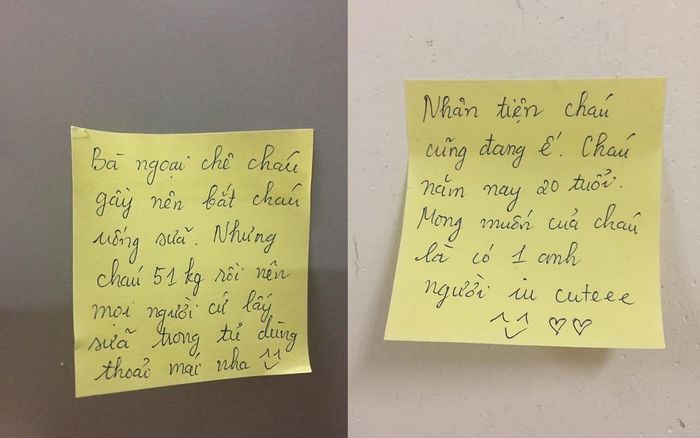 Bà ngoại chê cháu
gầy nên bắt cháu
uống sữa. Nhưng
cháu 51 kg rồi nên
mọi người cứ lấy
sữa trong tủ dùng
thoải mái nha ^^
Nhân tiện cháu
cũng đang ế. Cháu
năm nay 20 tuổi.
Mong muốn của cháu
là có 1 anh
người iu cuteee
^^ ♡♡